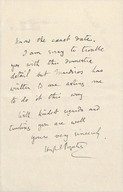 know the exact date.
I am sorry to trouble
you with this domestic
detail but has
written asking me
to do it this way
With kindest regards and
trusting you are well
yours very sincerely